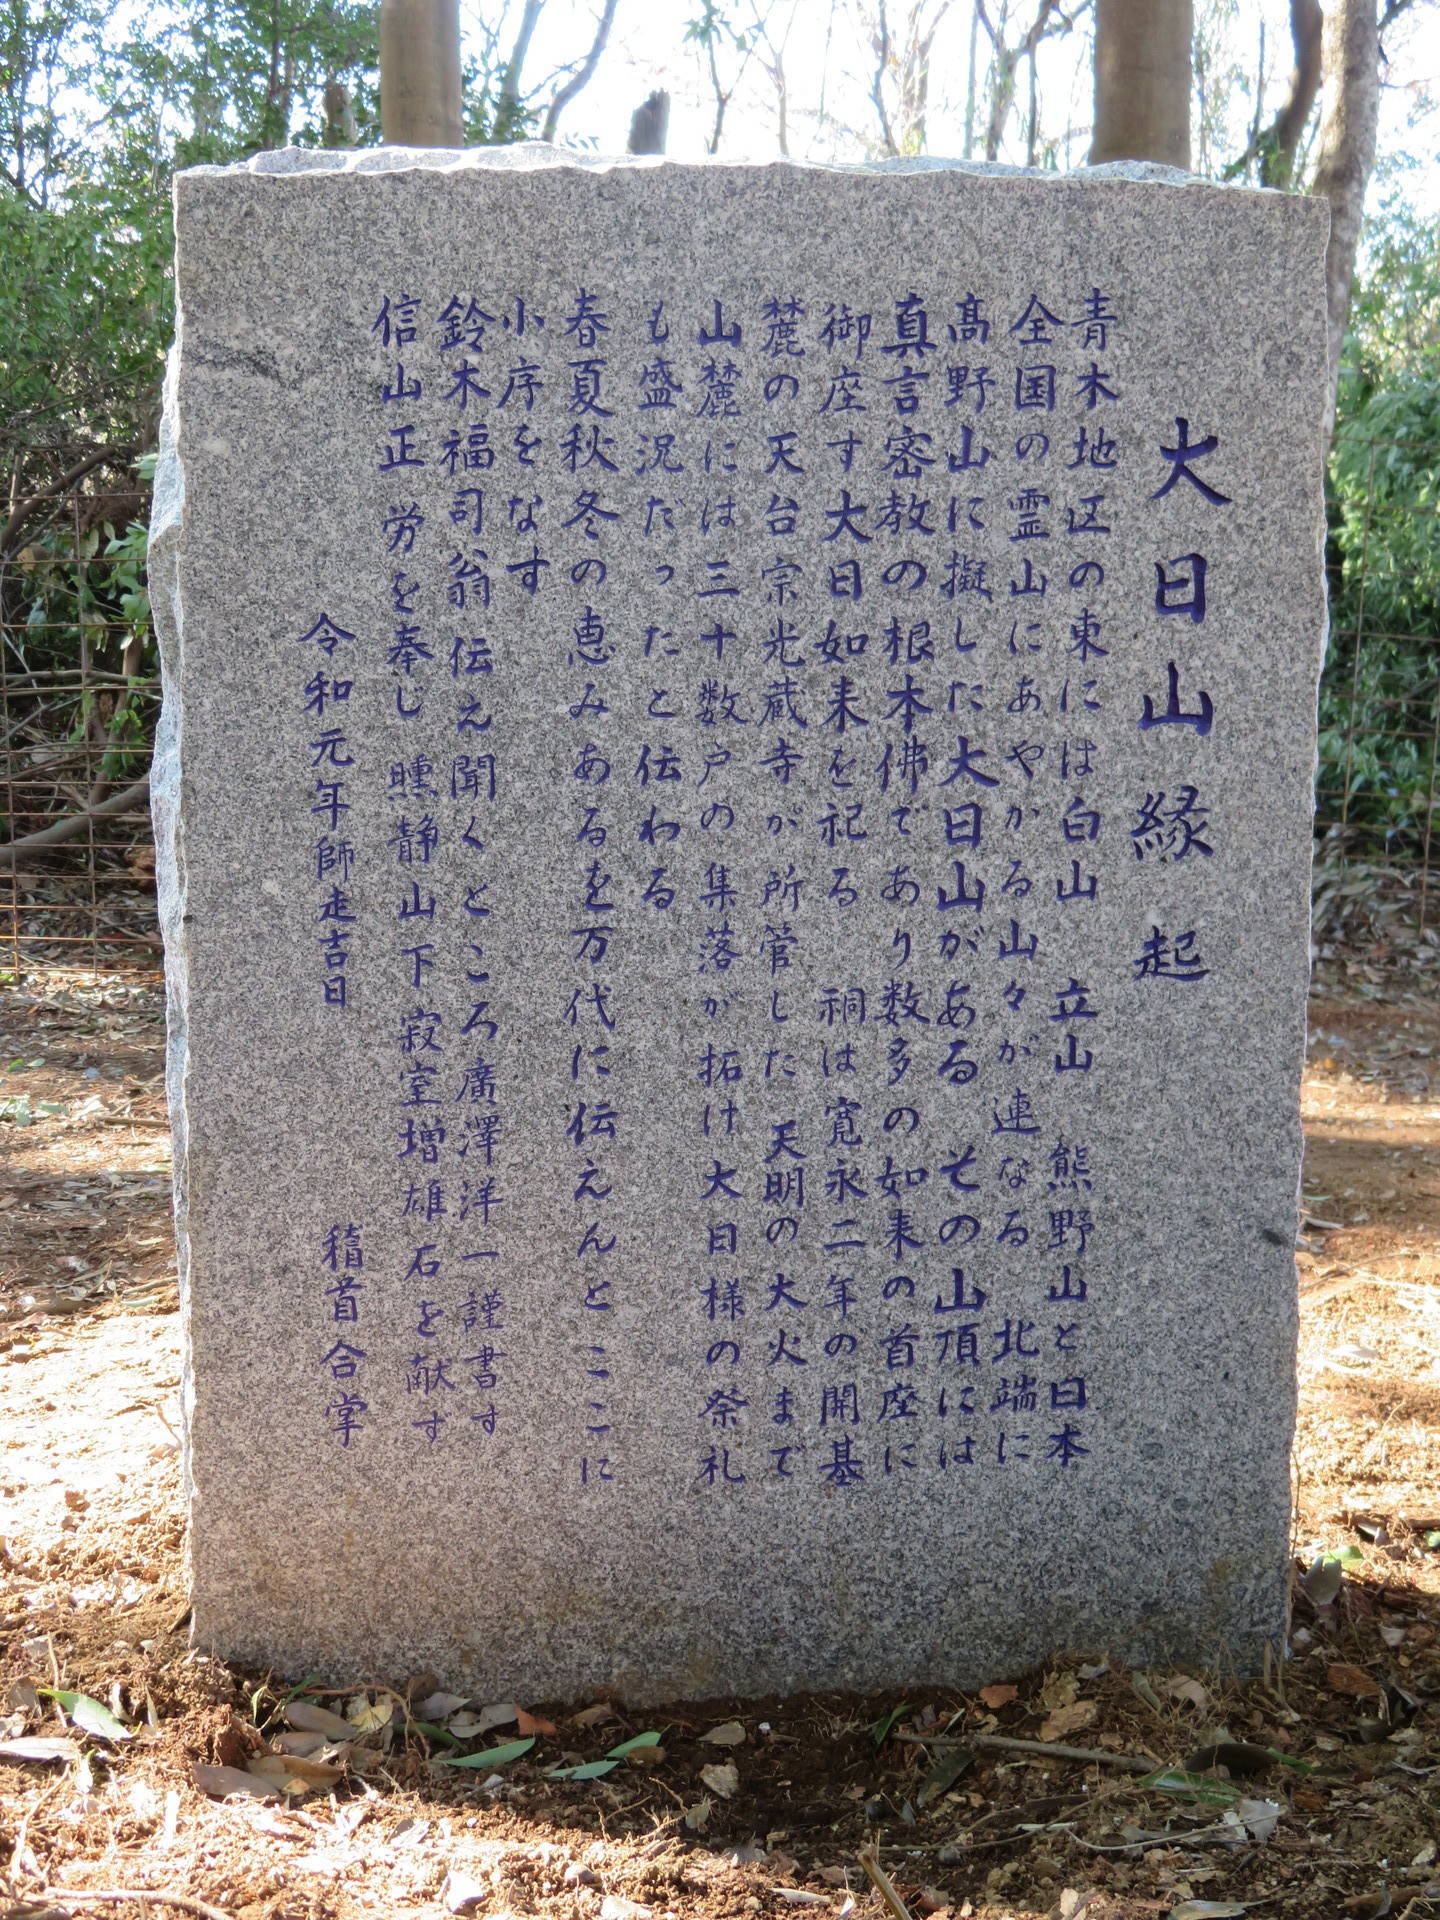 大日山縁起
青木地区の東には白山　立山　熊野山と日本
全国の霊山にあやかる山々が連なる北端に
髙野山に擬した大日山がある その山頂には
真言密教の根本佛であり数多の如来の首座に
御座す大日如来を祀る 祠は寛永二年の開基
麓の天台宗光蔵寺が所管した 天明の大火まで
山麓には三十数戸の集落が拓け大日様の祭礼
も盛況だったと伝わる
春夏秋冬の恵みあるを万代に伝えんとここに
小序をなす
鈴木福司翁 伝え聞くところ廣澤洋一謹書す
信山正 労を奉じ 曛静山下 寂室増雄石を献ず
令和元年師走吉日　　　稽首合掌